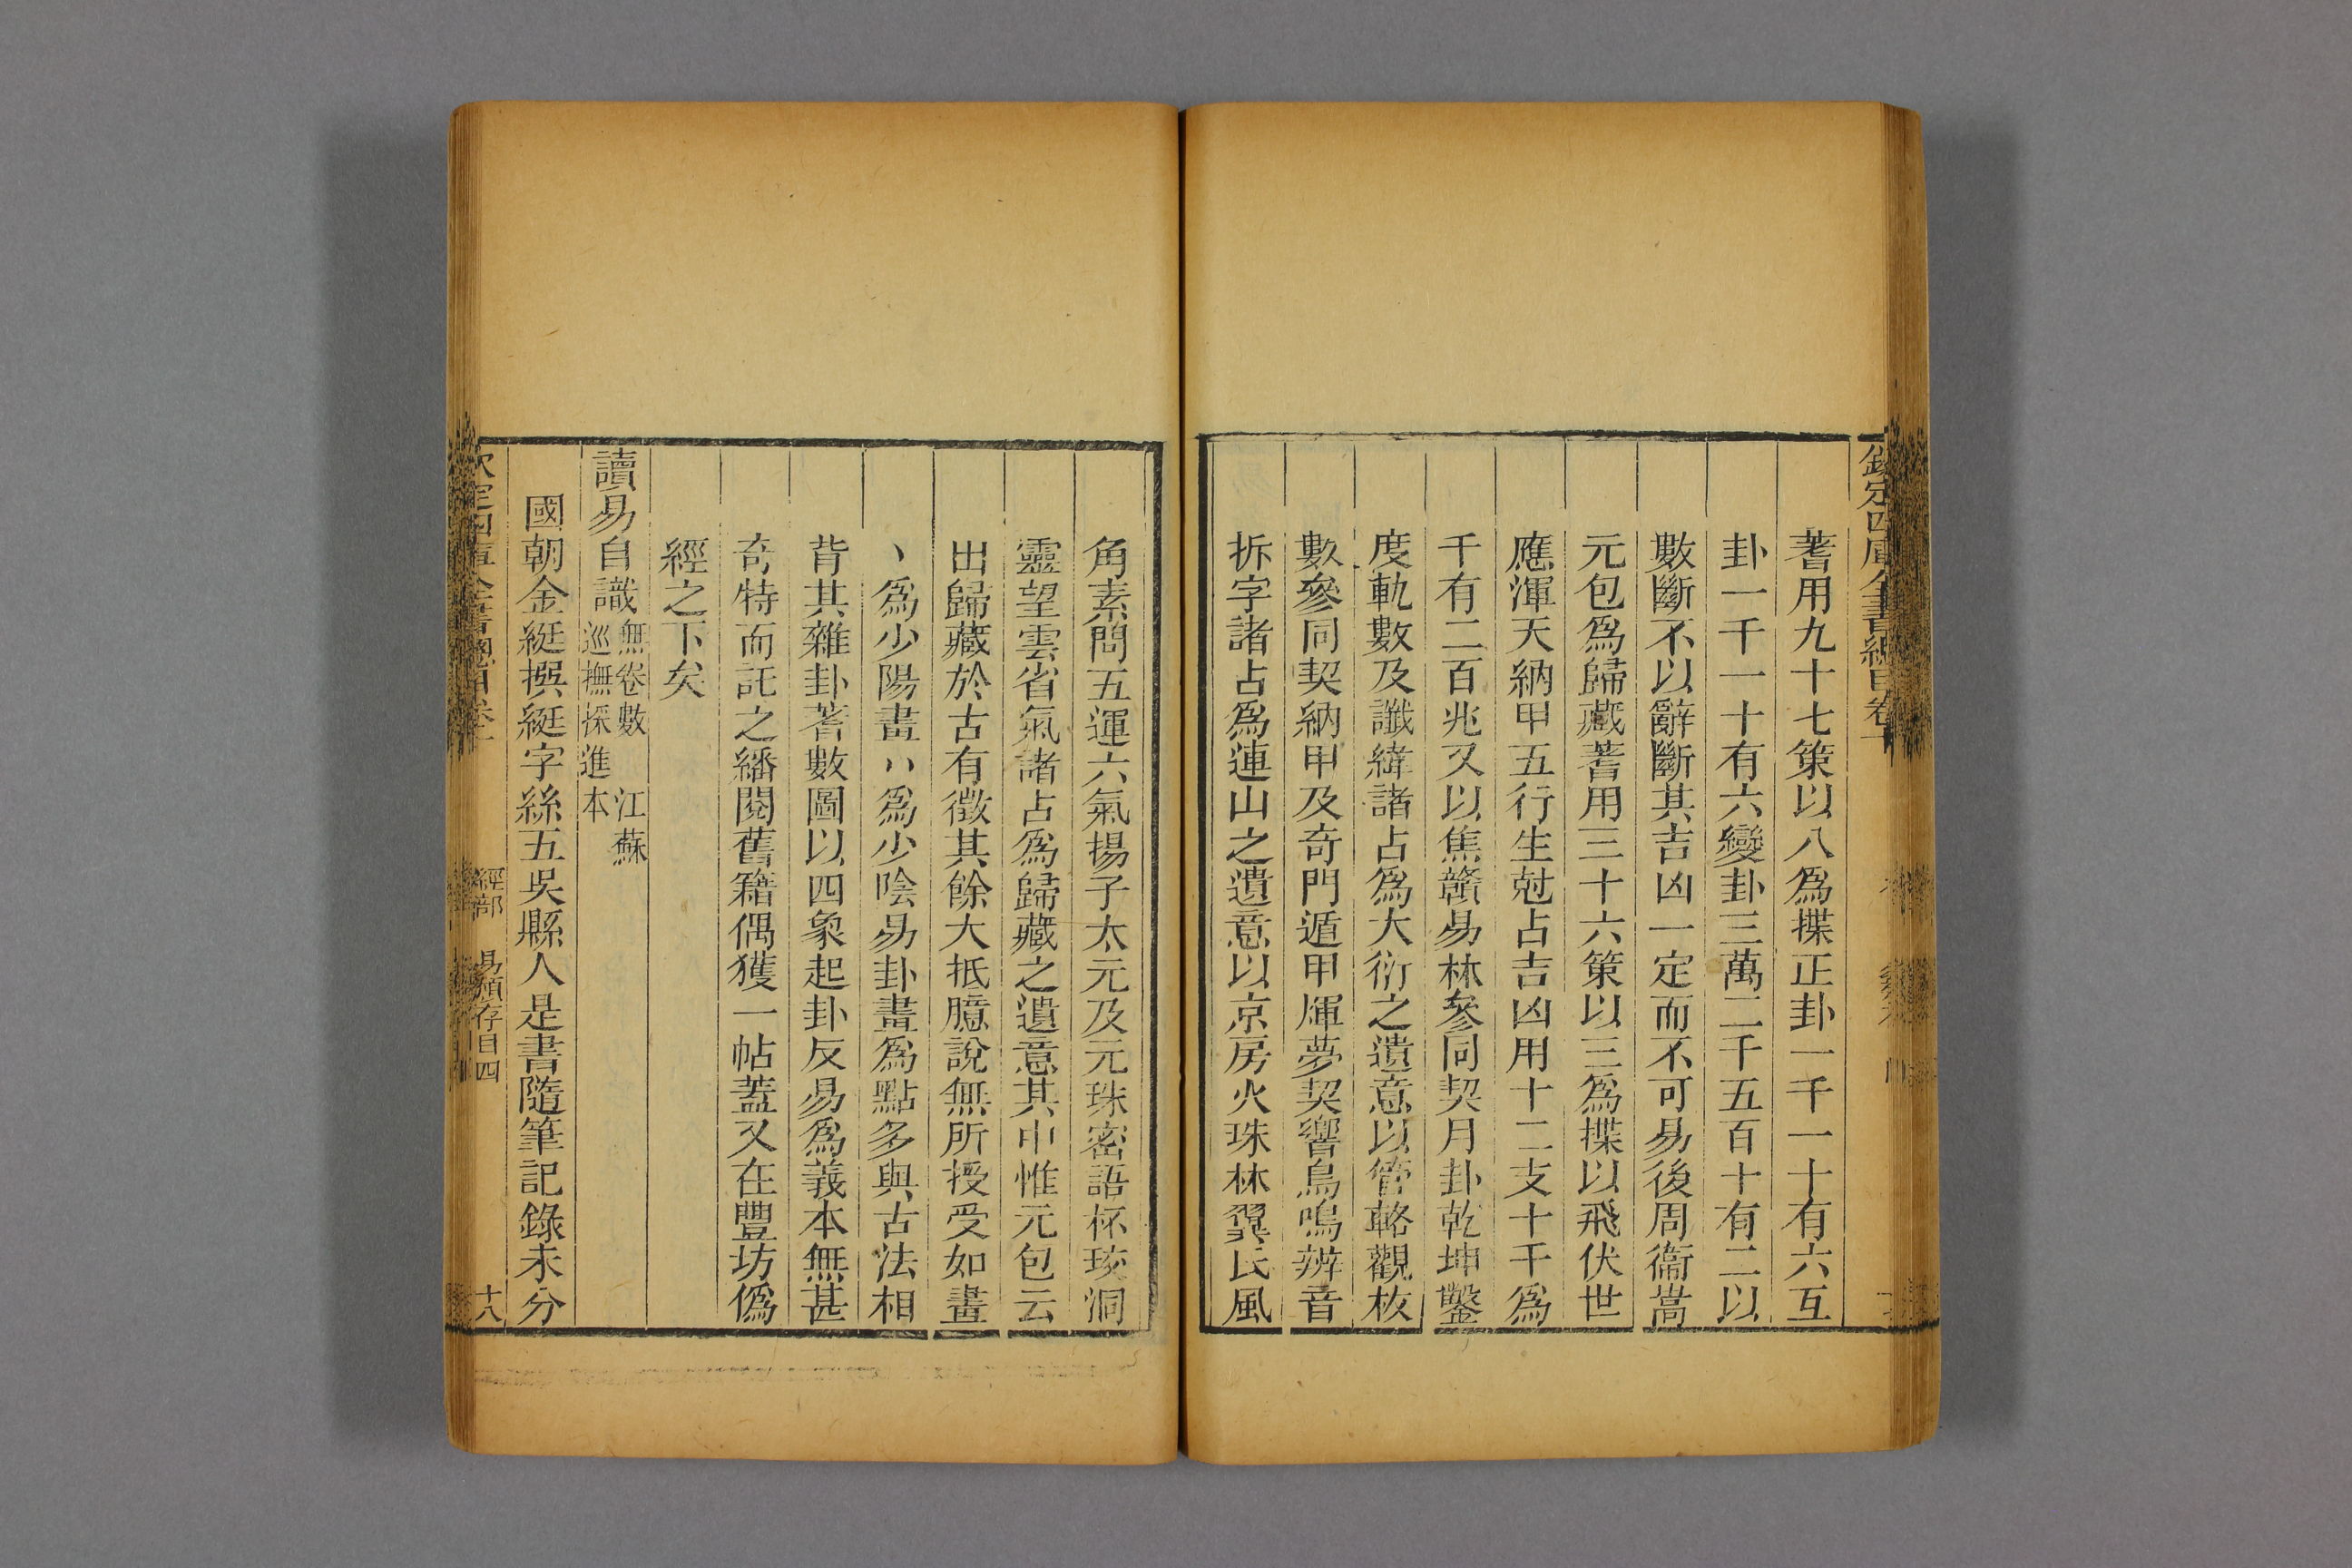 蓍用九十七策以八爲揲正卦一千一十有六互
卦一千一十有六變卦三萬二千五百十有二以
數斷不以辭斷其吉凶一定而不可易後周衞嵩
元包爲歸藏蓍用三十六策以三爲揲以飛伏世
應渾天納甲五行生尅占吉凶用十二支十干爲
千有二百兆又以焦贛易林參同契月卦乾坤鑿
度軌數及讖緯諸占爲大衍之遺意以管輅觀枚
數參同契納甲及奇門遁甲煇夢契響鳥鳴辨音
拆字諸占爲連山之遺意以京房火珠林翼氏風
角素問五運六氣揚子太元及元珠密語杯珓洞
靈望雲省氣諸占爲歸藏之遺意其中惟元包云
出歸藏於古有徵其餘大抵臆說無所授受如畫
丶爲少陽畫八爲少陰易卦畫爲點多與古法相
背其雜卦蓍數圖以四象起卦反易爲義本無甚
奇特而託之繙閱舊籍偶獲一帖蓋又在豐坊僞
經之下矣
讀易自識無卷數 江蘇巡撫採進本
國朝金綎撰綎字絲五吳縣人是書隨筆記錄未分
經部 易類存目四
十八